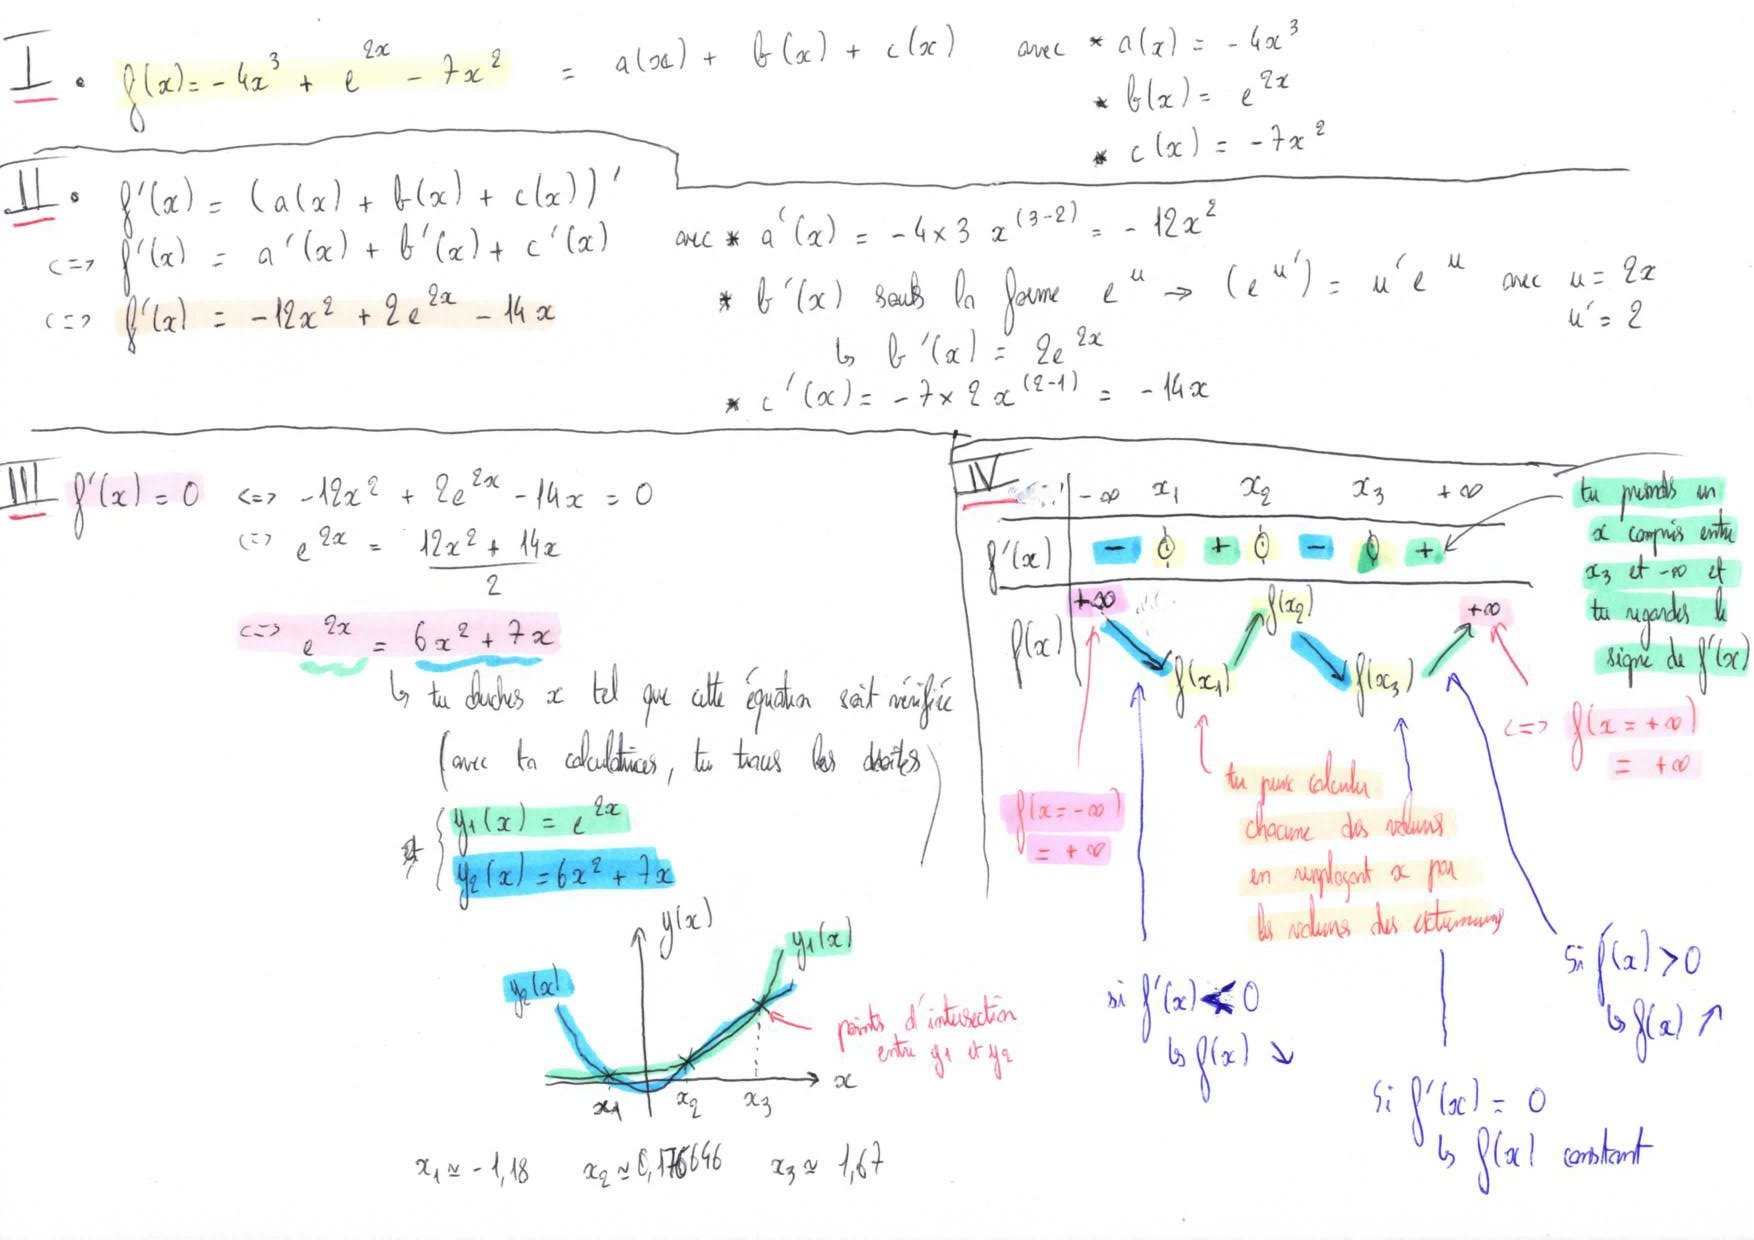 I. f(x) = - 4x³ + e^2x - 7x² = a(x) + b(x) + c(x) avec * a(x) = - 4x³
* b(x) = e^2x
* c(x) = - 7x²
II. f'(x) = (a(x) + b(x) + c(x))'
<=> f'(x) = a'(x) + b'(x) + c'(x) avec * a'(x) = - 4 × 3 x^(3-2) = - 12x²
* b'(x) sous la forme e^u → (e^u') = u'e^u avec u = 2x
u' = 2
<=> f'(x) = - 12x² + 2e^2x - 14x
↳ b'(x) = 2e^2x
* c'(x) = - 7 × 2 x^(2-1) = - 14x
III f'(x) = 0 <=> - 12x² + 2e^2x - 14x = 0
<=> e^2x = 12x² + 14x / 2
<=> e^2x = 6x² + 7x
↳ tu cherches x tel que cette équation soit vérifiée
(avec ta calculatrices, tu traces les droites)
{ y₁(x) = e^2x
y₂(x) = 6x² + 7x
y(x)
y₁(x)
y₂(x)
x
x₁ x₂ x₃
points d'intersection
entre y₁ et y₂
x₁ ≃ - 1,18 x₂ ≃ 0,176646 x₃ ≃ 1,67
IV
- ∞ x₁ x₂ x₃ + ∞
f'(x) - 0 + 0 - 0 +
f(x) +∞ f(x₁) f(x₂) f(x₃) +∞
tu prends un
x compris entre
x₃ et -∞ et
tu regardes le
signe de f'(x)
<=> f(x = +∞)
= +∞
f(x = -∞)
= +∞
tu peux calculer
chacune des valeurs
en remplaçant x par
les valeurs des extremums
si f'(x) < 0
↳ f(x) ↘
Si f'(x) = 0
↳ f(x) constant
Si f(x) > 0
↳ f(x) ↗